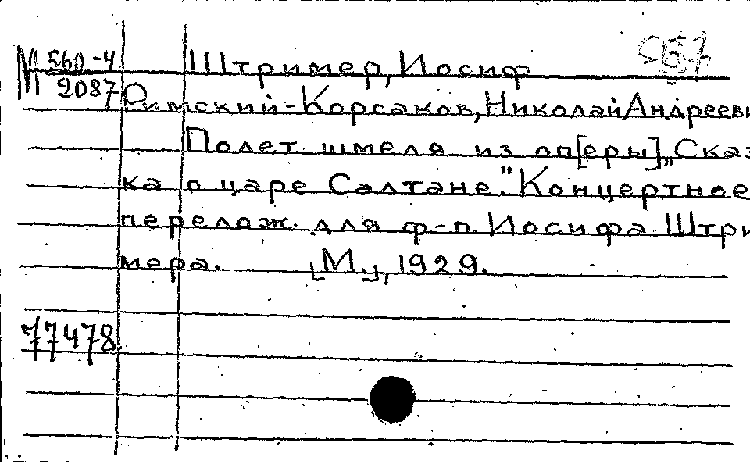 М 560-4
2087
957
Штример, Иосиф
Римский-Корсаков, Николай Андрееви
Полет шмеля из оп[еры] „Сказ
ка о царе Салтане." Концертное
перелож. для ф-п. Иосифа Штри
мера. [М.], 1929.
77478